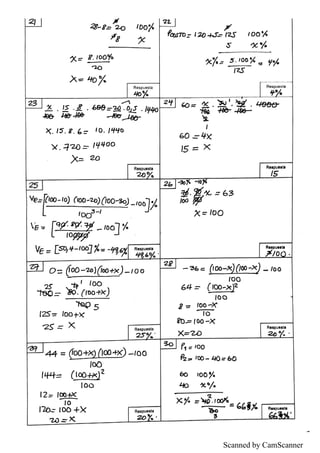 21
28-8=20 100%
8 X
X = 8.100%
20
X = 40%
Respuesta
40%
22
Pcosto = 120+5 = 125 100%
5 X%
X% = 5.100% = 4%
125
Respuesta
4%
23
X . 15 . 8 . 600 = 20 . 0,5 . 1440
100 100 100 100 100
X.15.8.6 = 10.1440
X.720 = 14400
X = 20
Respuesta
20%
24
60 = X
60 = 4X
15 = X
Respuesta
15
25
VE = [(100-10) (100-20)(100-30) - 100]%
100³⁻¹
VE = [90.80.70 - 100]%
VE = [50,4-100]% = -49.6%
Respuesta
49.6%
26
-30% -10%
70 . 90 . X = 63
100
X = 100
Respuesta
100
27
0 = (100-20)(100+X) - 100
100
100 = 80.(100+X)
125 = 100+X
25 = X
Respuesta
25%
28
-36 = (100-X)(100-X) - 100
100
64 = (100-X)²
100
8 = 100-X
10
80 = 100-X
X = 20
Respuesta
20%
29
44 = (100+X)(100+X) - 100
100
144 = (100+X)²
100
12 = 100+X
10
120 = 100+X
20 = X
Respuesta
20%
30
P₁ = 100
P₂ = 100-40 = 60
60 100%
40 X%
X% = 40.100% = 66⅔%
Respuesta
66⅔%
Scanned by CamScanner